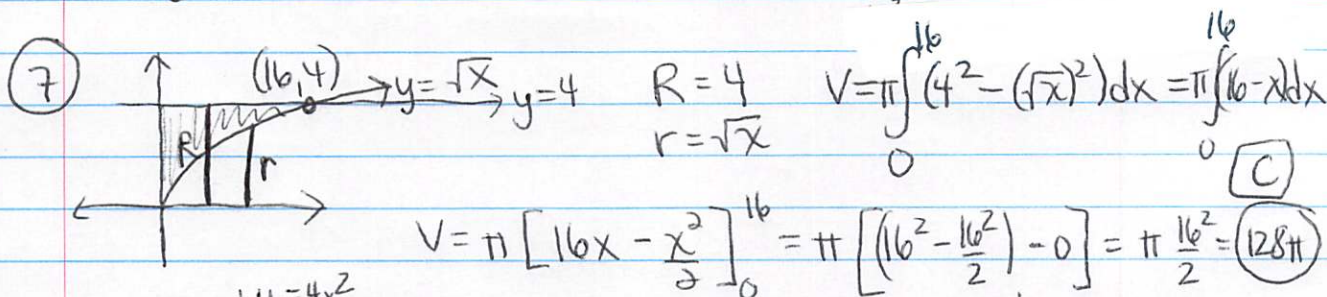 7 (16,4) y=√x y=4 R=4 V=π∫₀¹⁶(4²-(√x)²)dx = π∫₀¹⁶(16-x)dx
r=√x
R r
C
V=π[16x - x²/2]₀¹⁶ = π[(16² - 16²/2) - 0] = π 16²/2 = 128π